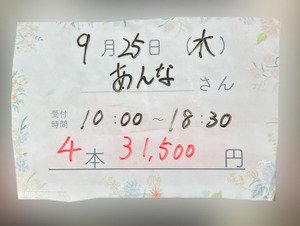 9月25日(木)
あんなさん
受付時間 10:00~18:30
4本 31,500円